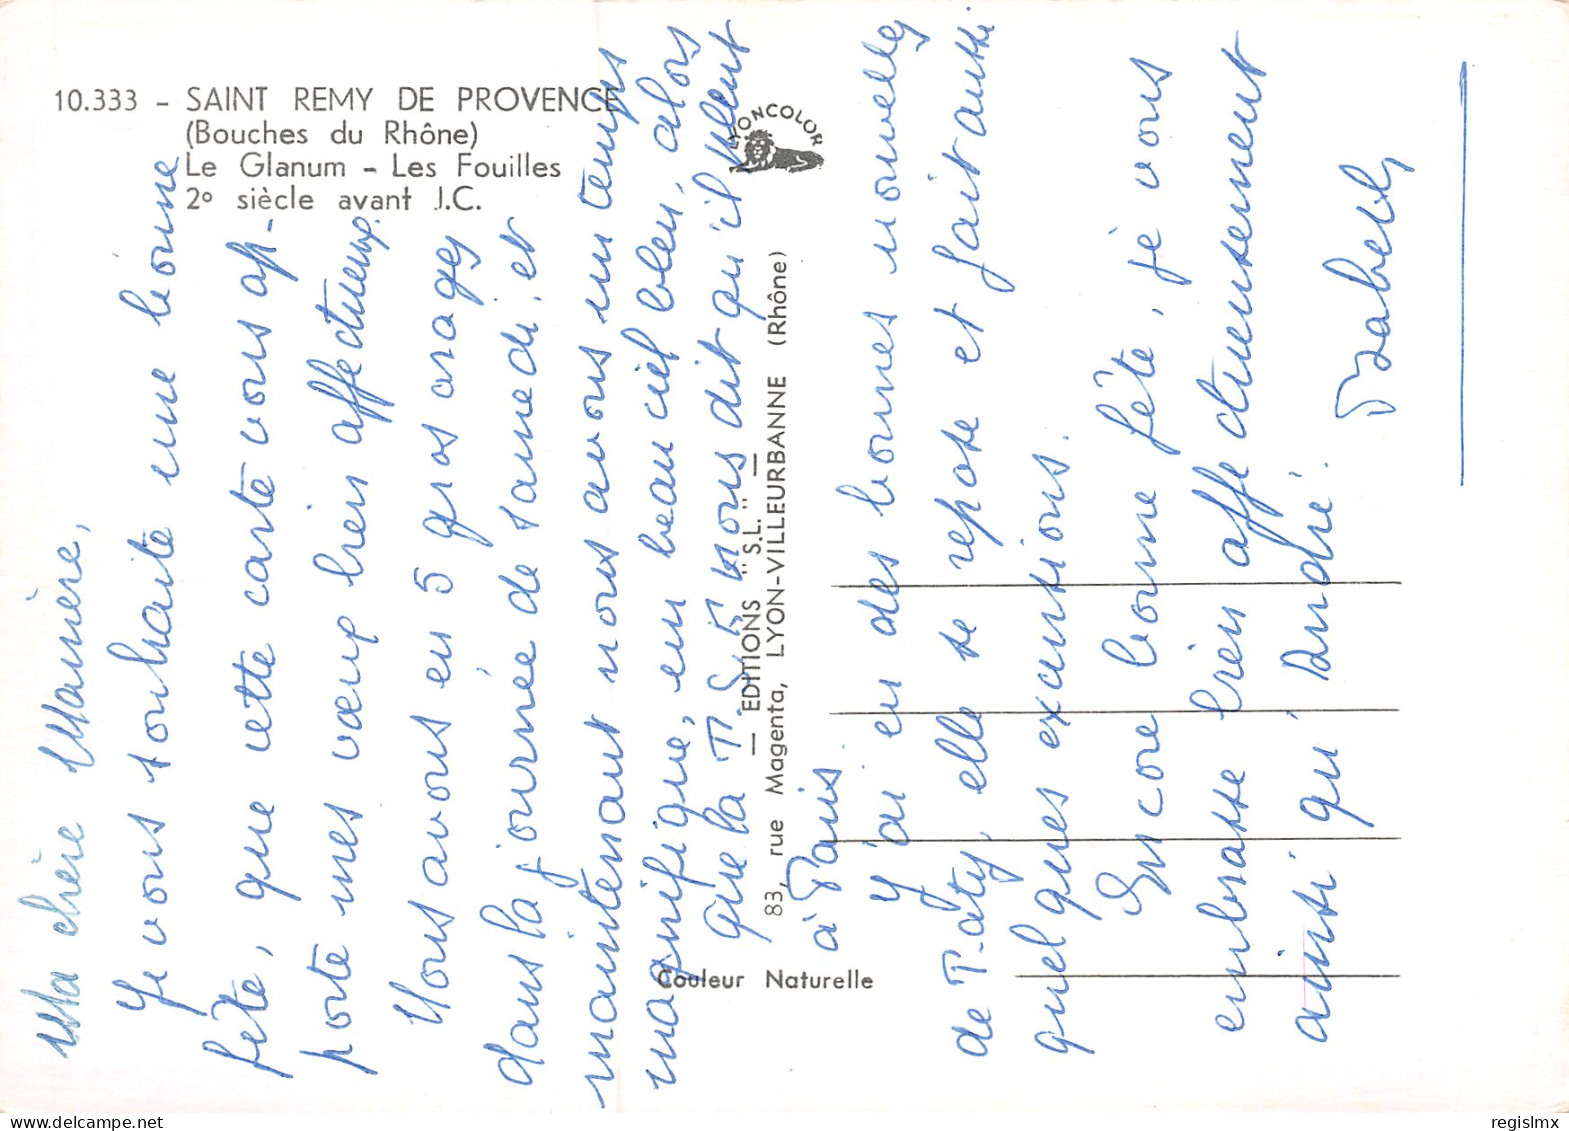 10.333 - SAINT REMY DE PROVENCE
(Bouches du Rhône)
Le Glanum - Les Fouilles
2º siècle avant J.C.
LYONCOLOR
— EDITIONS "S.L." —
83, rue Magenta, LYON-VILLEURBANNE (Rhône)
Couleur Naturelle
Ma chère
Je vous souhaite une bonne
fête, que cette carte vous ap-
porte mes vœux bien affectueux.
Nous avons eu 5 gros orages
dans la journée de samedi, et
maintenant nous avons un temps
magnifique, un beau ciel bleu, alors
que la T.S.F. nous dit qu'il pleut
à Paris.
J'ai eu des bonnes nouvelles
de elle se repose et fait aussi
quelques excursions.
Encore bonne fête, je vous
embrasse bien affectueusement
ainsi qu'André.
regislmx